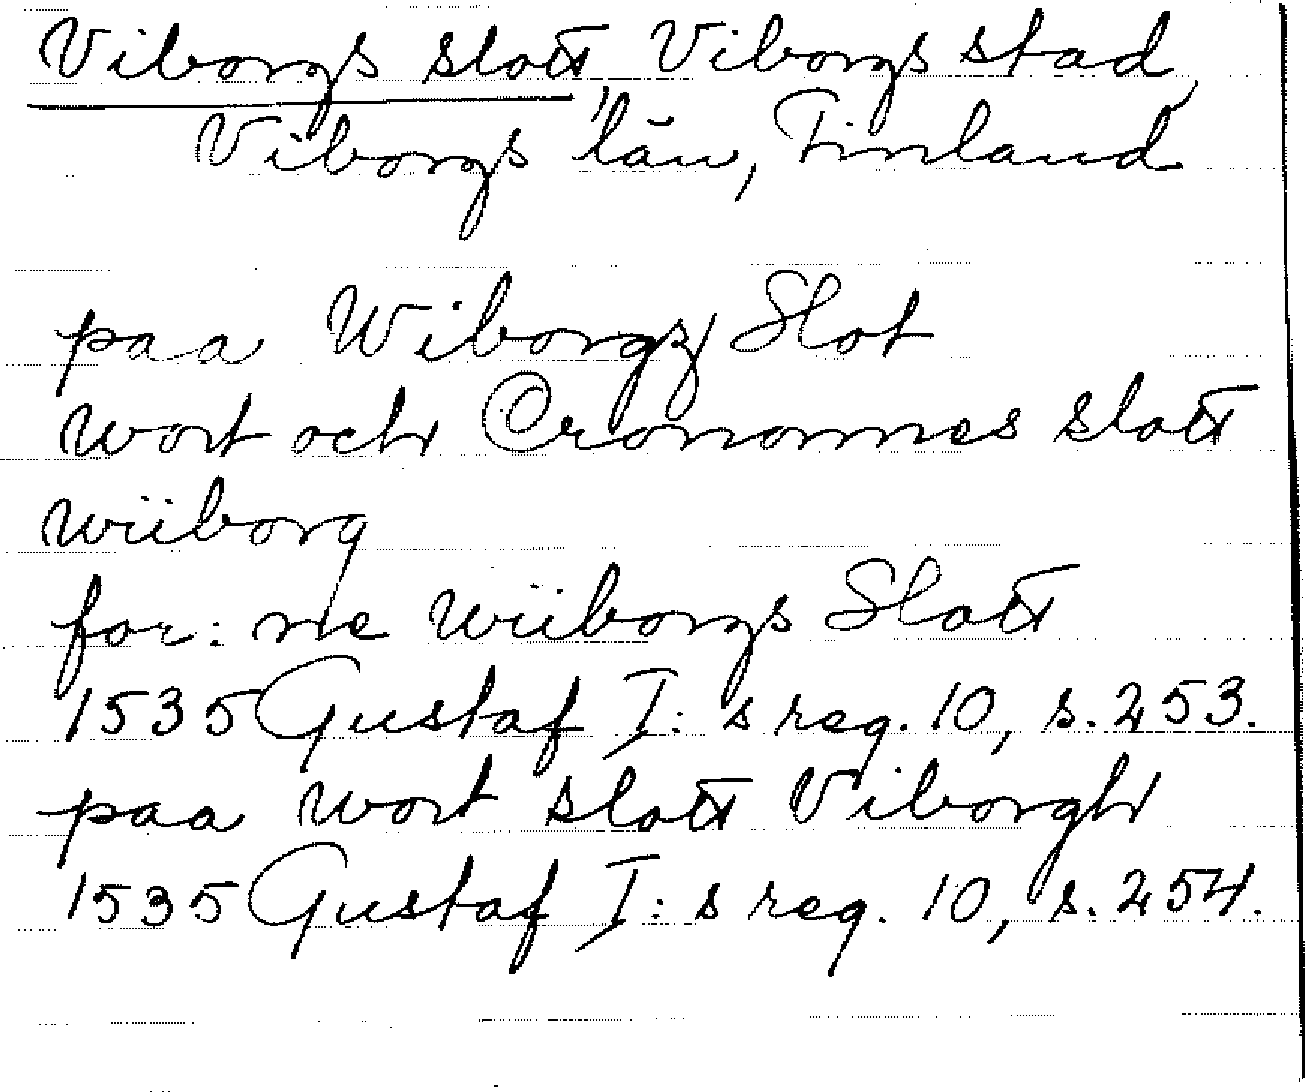 Viborgs slott, Viborgs stad,
Viborgs län, Finland
paa Wiborgz Slot
wort och Cronomnes slott
wiiborg
for: ne wiiborgs Slott
1535 Gustaf I: s reg. 10, s. 253.
paa wort slott Viborgh
1535 Gustaf I: s reg. 10, s. 254.